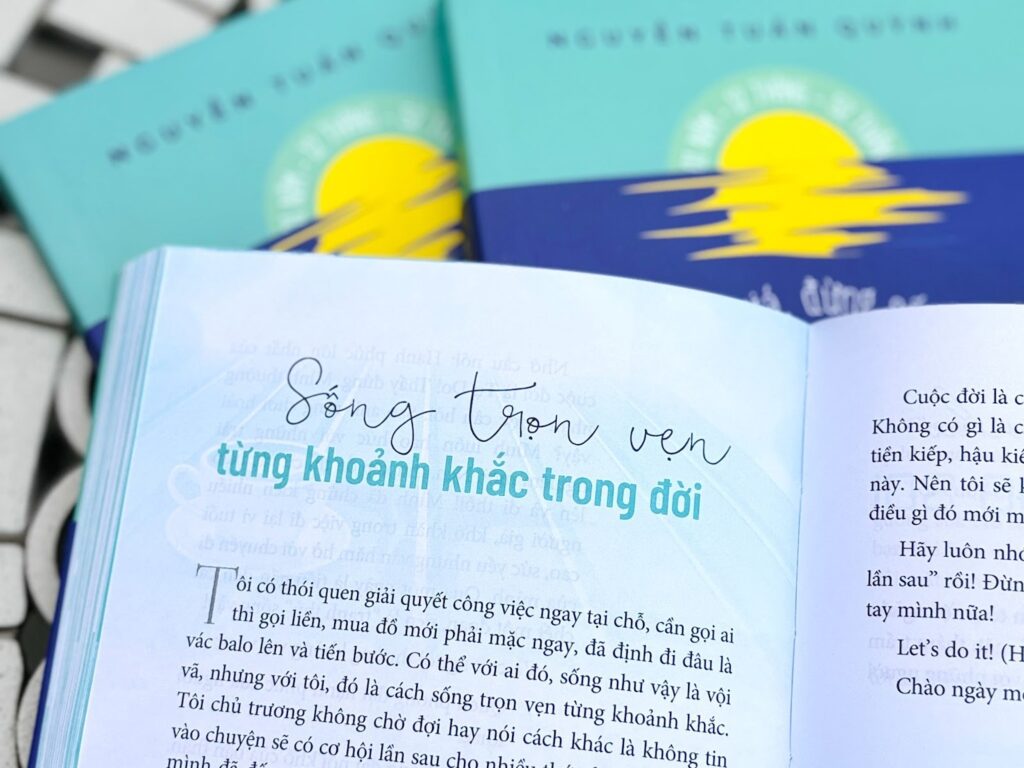 NGUYỄN TUẤN QU
NGUYỄN TUẤN QUỲNH
Sống trọn vẹn
từng khoảnh khắc trong đời
Tôi có thói quen giải quyết công việc ngay tại chỗ, cần gọi ai
thì gọi liền, mua đồ mới phải mặc ngay, đã định đi đâu là
vác balo lên và tiến bước. Có thể với ai đó, sống như vậy là vội
vã, nhưng với tôi, đó là cách sống trọn vẹn từng khoảnh khắc.
Tôi chủ trương không chờ đợi hay nói cách khác là không tin
vào chuyện sẽ có cơ hội lần sau cho nhiều
mình đã
Cuộc đời là c
Không có gì là c
tiền kiếp, hậu ki
này. Nên tôi sẽ
điều gì đó mới m
Hãy luôn nhớ
lần sau” rồi! Đừn
tay mình nữa!
Let's do it! (H
Chào ngày m